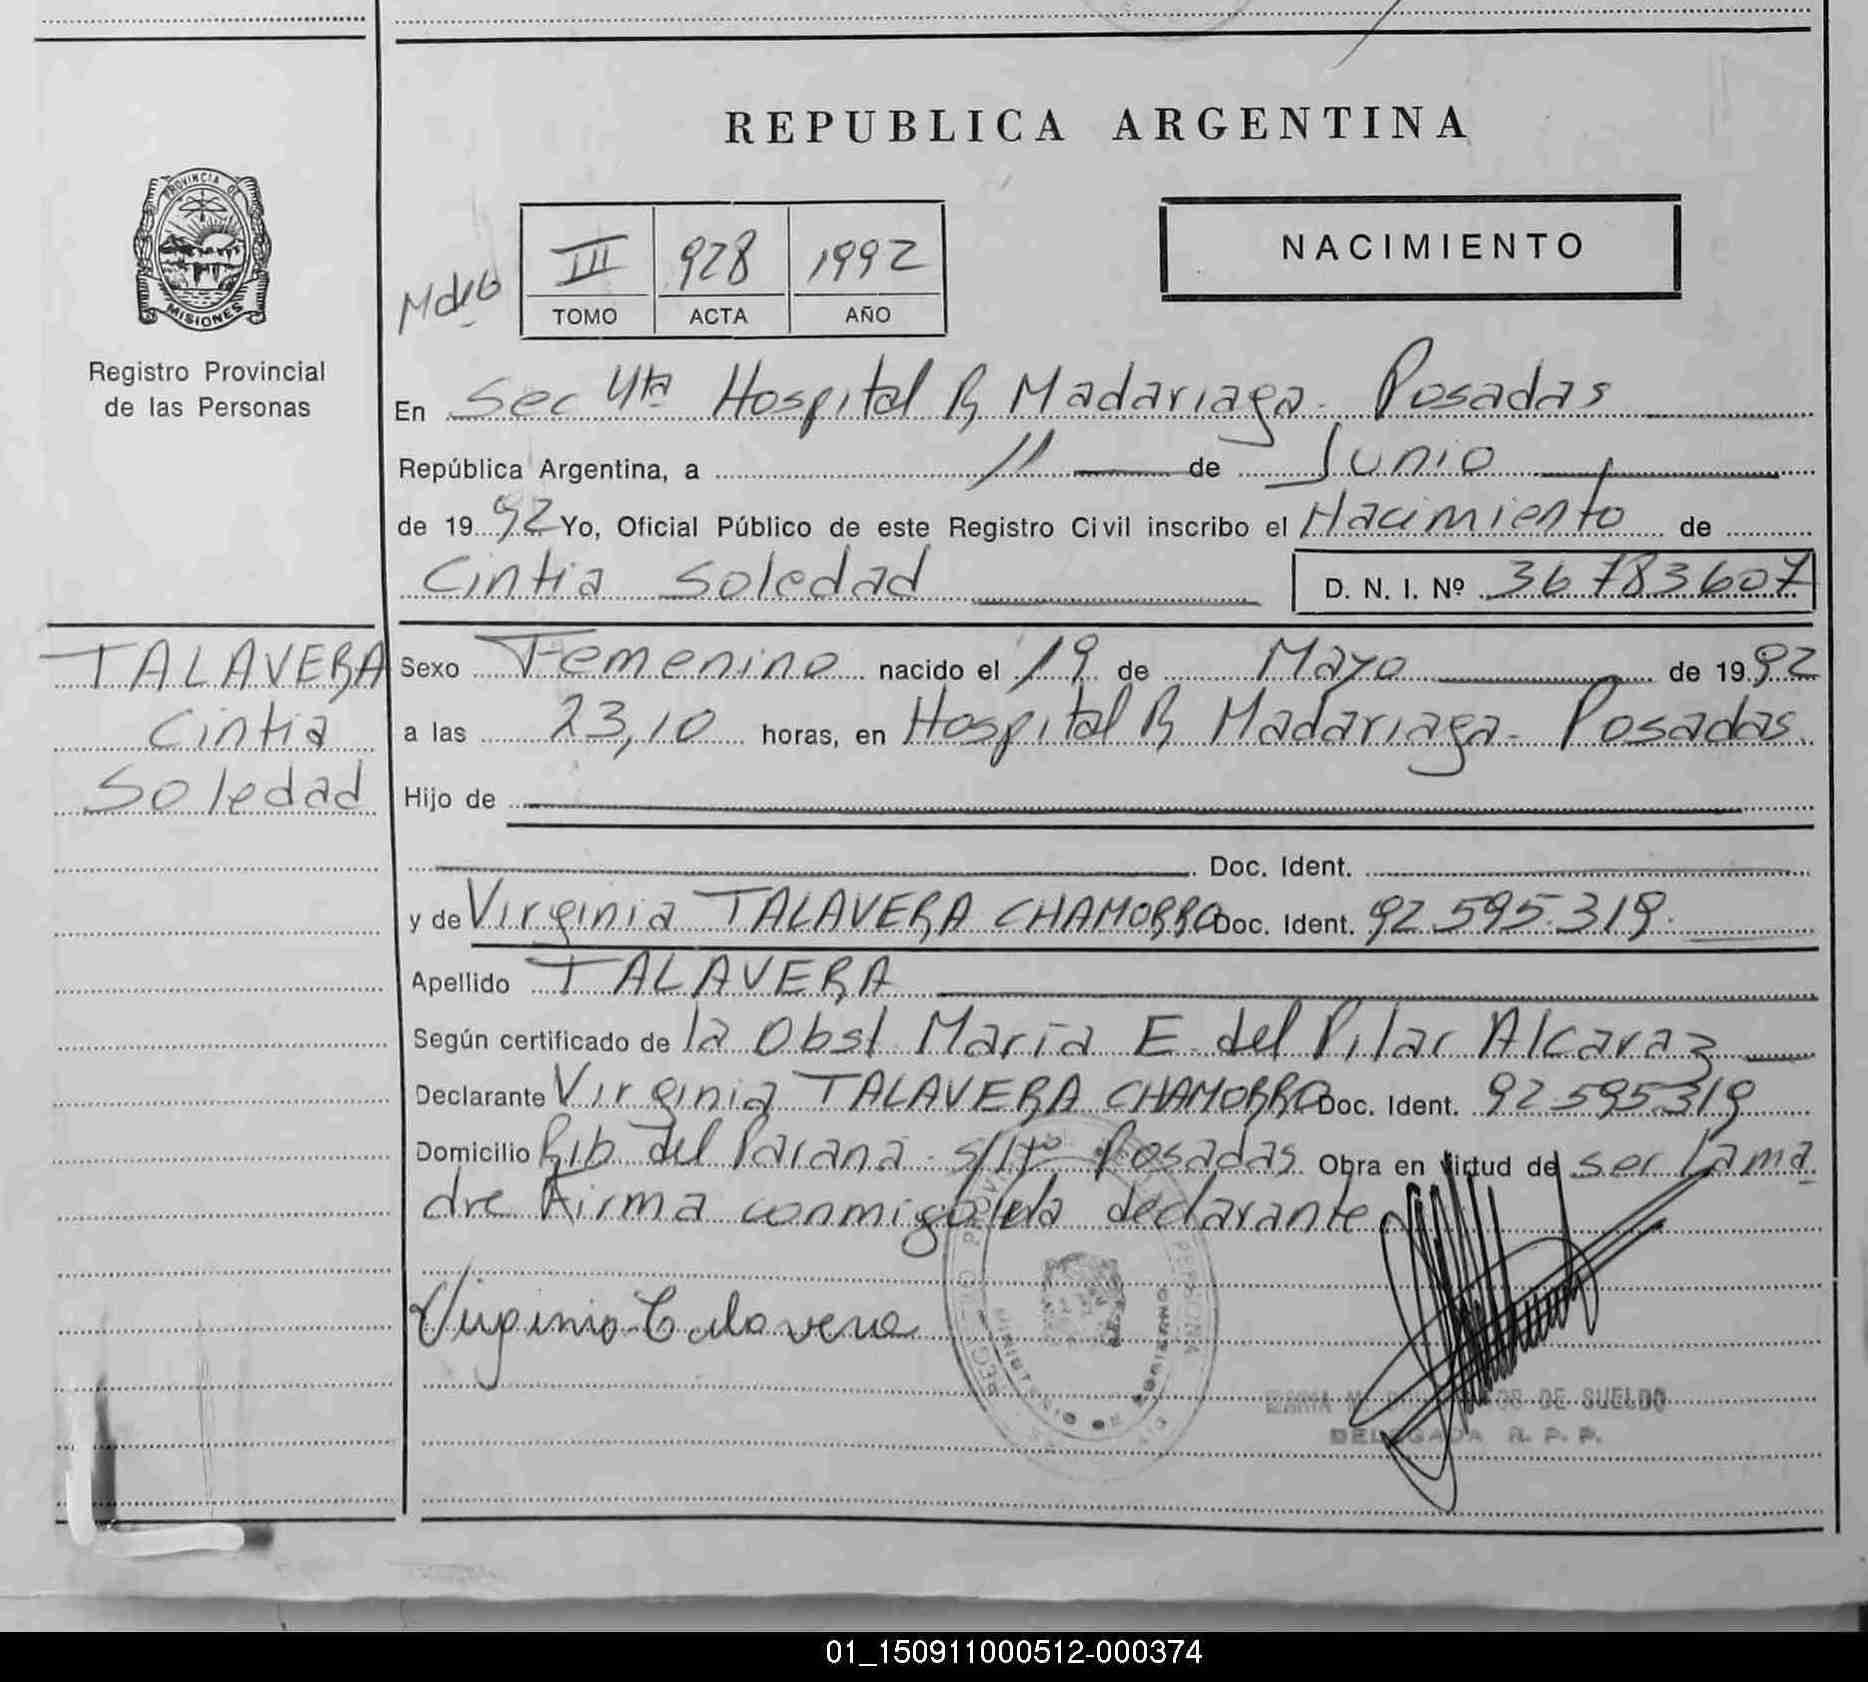 REPUBLICA ARGENTINA
PROVINCIA DE
MISIONES
Registro Provincial
de las Personas
III 928 1992
TOMO ACTA AÑO
NACIMIENTO
En Sec 4ta Hospital R Madariaga - Posadas
República Argentina, a 11 de Junio
de 1992 Yo, Oficial Público de este Registro Civil inscribo el Nacimiento de
Cintia Soledad D. N. I. Nº 36783607
TALAVERA
Cintia
Soledad
Sexo Femenino nacido el 19 de Mayo de 1992
a las 23,10 horas, en Hospital R Madariaga - Posadas
Hijo de
Doc. Ident.
y de Virginia TALAVERA CHAMORRO Doc. Ident. 92.595.319.
Apellido TALAVERA
Según certificado de la Obst María E. del Pilar Alcaraz
Declarante Virginia TALAVERA CHAMORRO Doc. Ident. 92.595.319
Domicilio Rib del Parana - s/nº Posadas Obra en virtud de ser la ma
dre Firma conmigo la declarante
Virginia Talavera
MINISTERIO DE GOBIERNO
DE SUELDO
DELEGADA R. P. P.
01_150911000512-000374